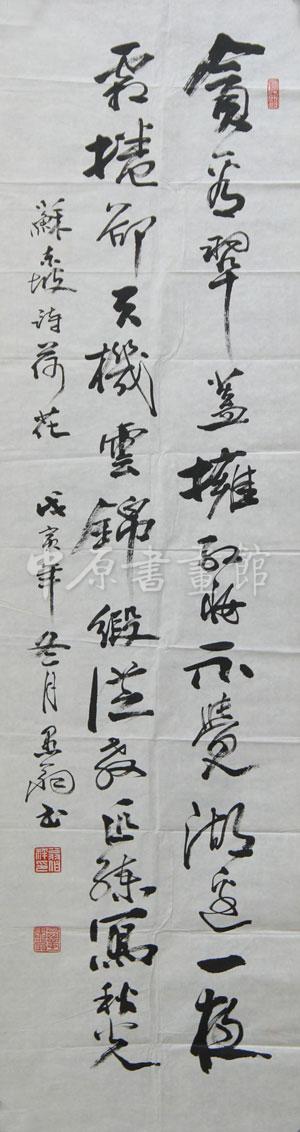 貪看翠蓋擁紅妝不覺湖邊一夜
霜捲卻天機雲錦緞從教匹練寫秋光
蘇東坡詩荷花 戊寅年 月 翁書
中原書畫館